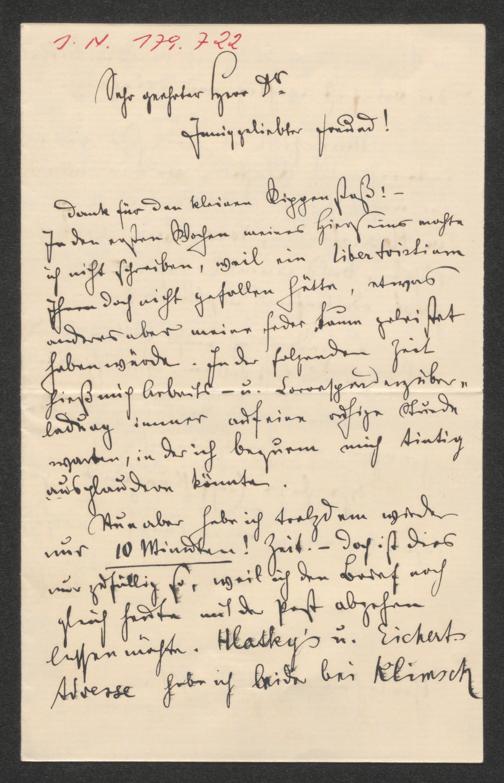 J. N. 179.722
Sehr geehrter Herr Dr.
Inniggeliebter Freund!
Dank für den kleinen Rippenstoß! –
In den ersten Wochen meines Hierseins mochte
ich nicht schreiben, weil ein
Ihnen doch nicht gefallen hätte, etwas
anderes aber meine Feder kaum geleistet
haben würde. In der folgenden Zeit
hieß mich Arbeits- u. Correspondenzüber-
ladung immer auf eine ruhige Stunde
warten, in der ich bequem mich tintig
ausplaudern könnte.
Nun aber habe ich trotzdem wieder
nur 10 Minuten! Zeit. – Doch ist dies
nur zufällig so, weil ich den Brief noch
gleich heute mit der Post abgehen
lassen möchte. Hlatky's u. Eicherts
Adresse habe ich leider bei Klimsch